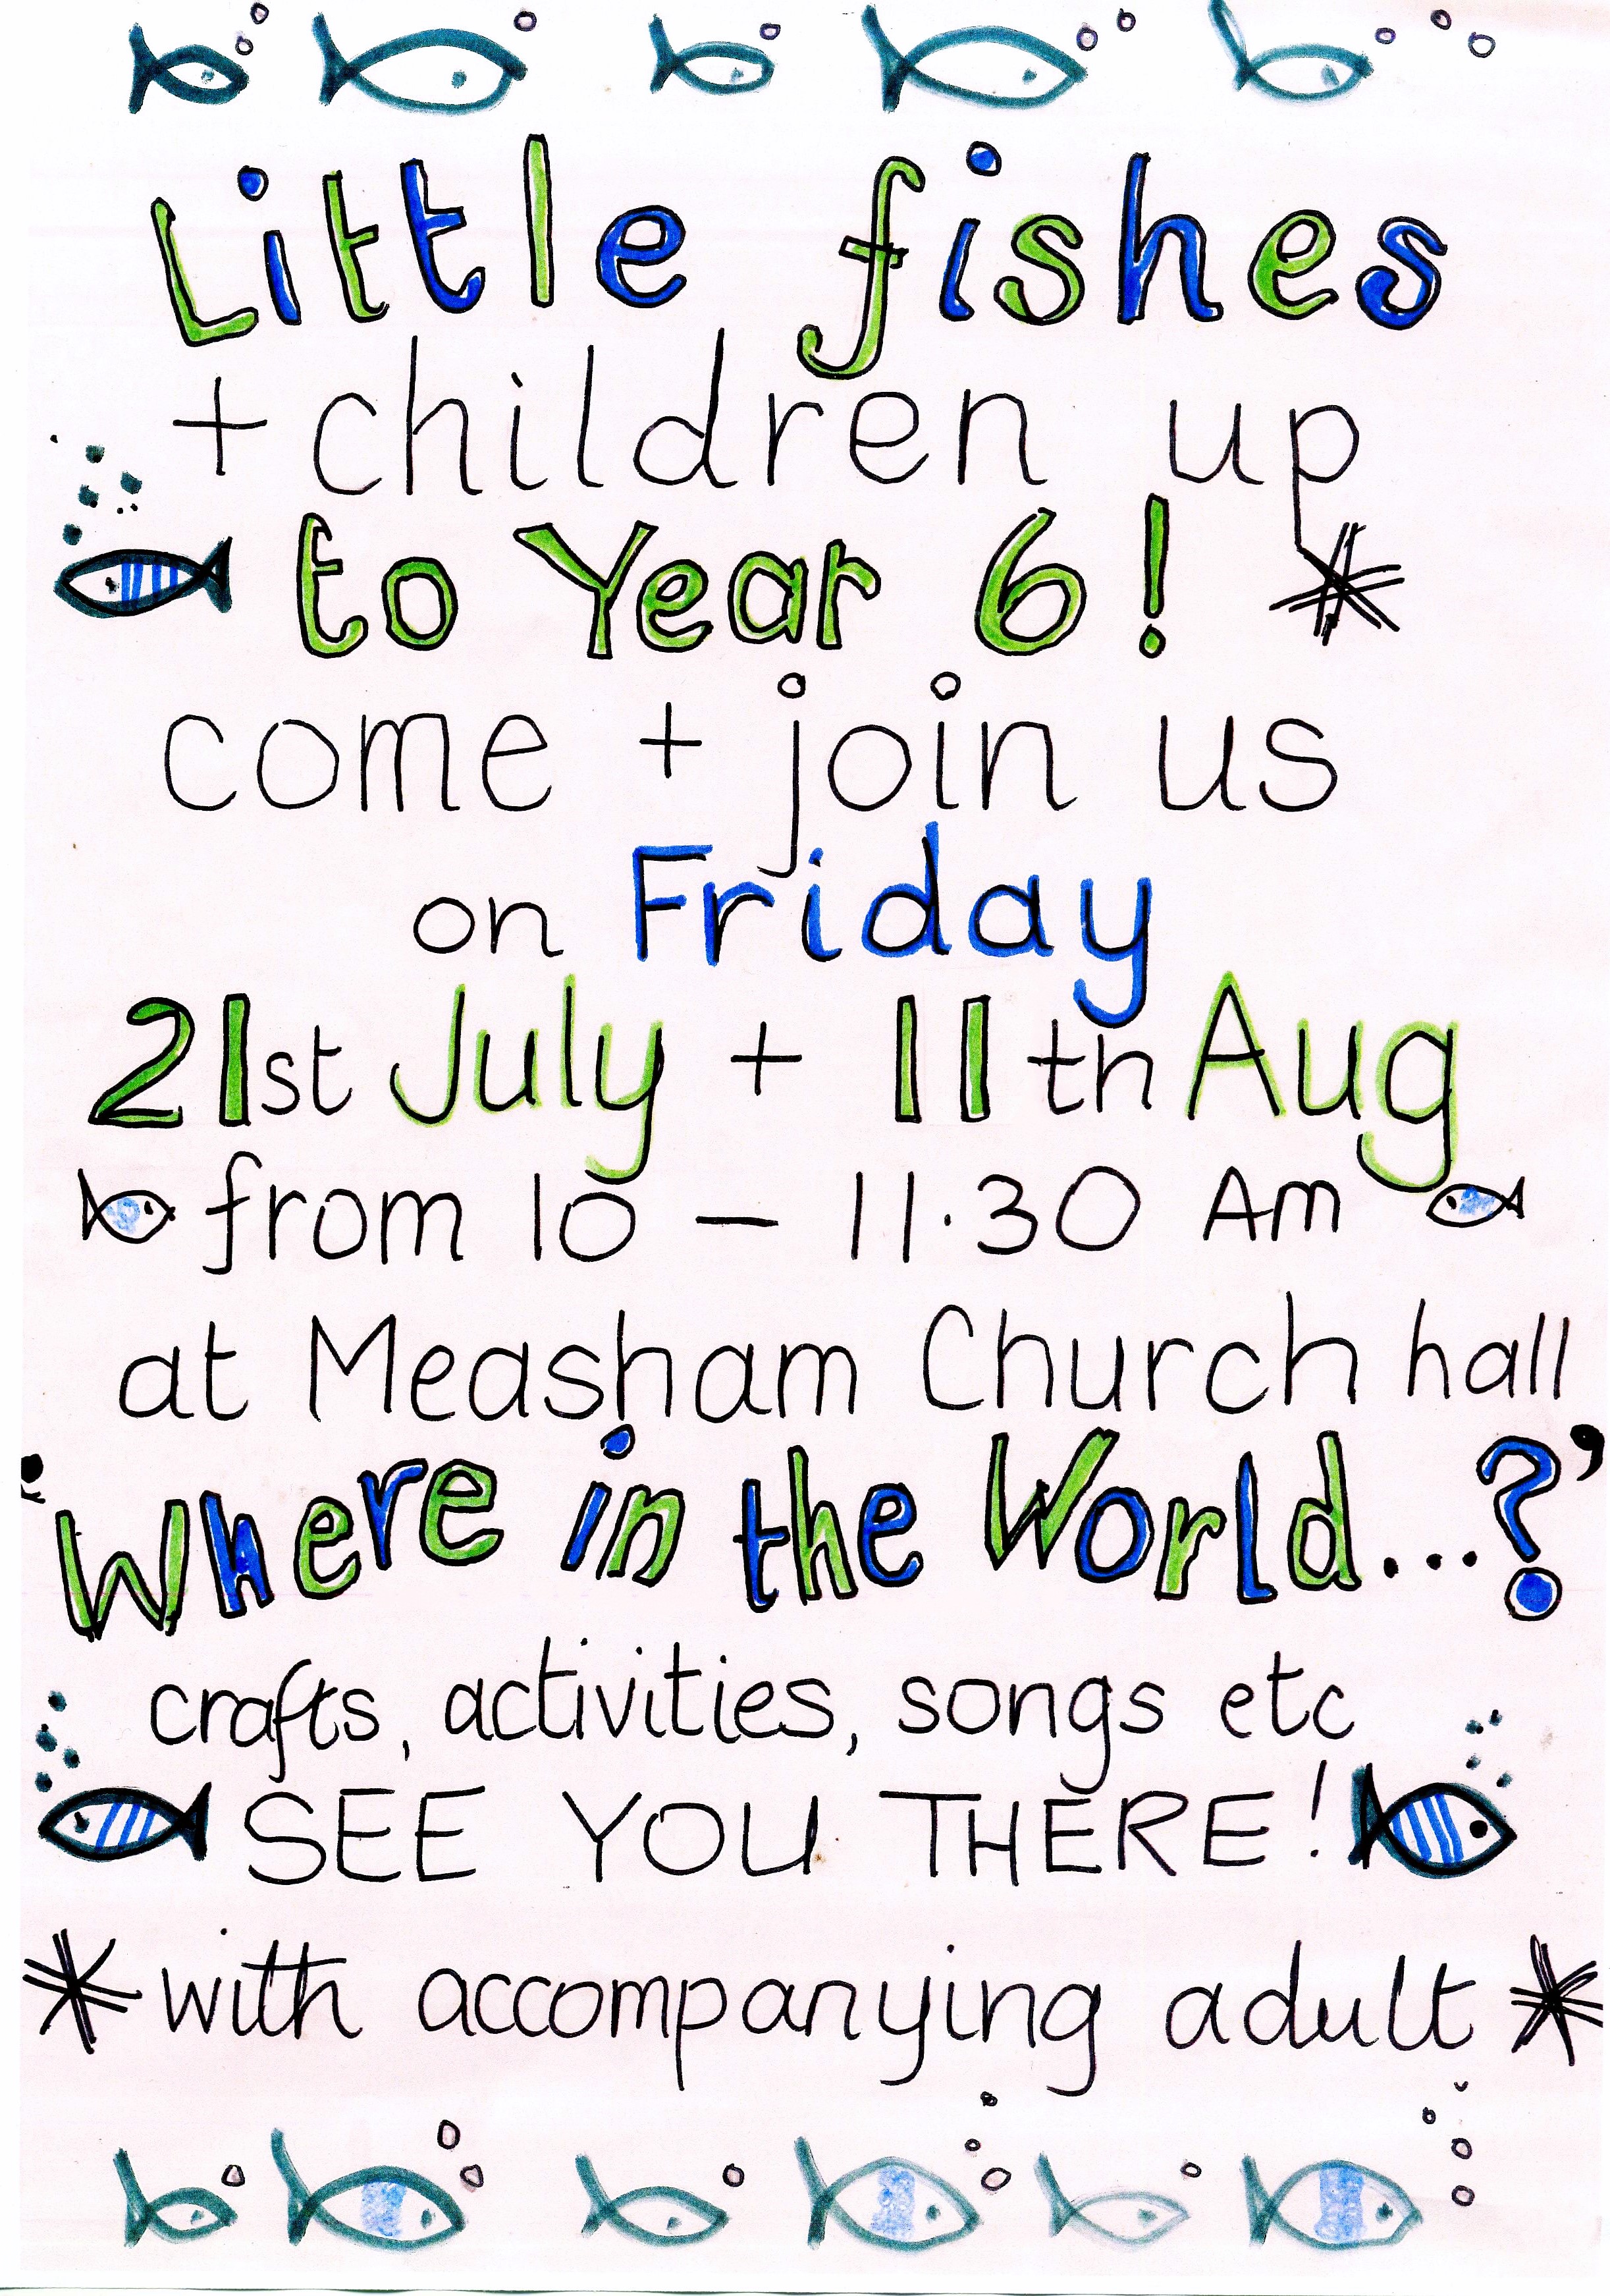 Little fishes
+ children up
to Year 6! *
come + join us
on Friday
21st July + 11th Aug
from 10 - 11.30 Am
at Measham Church hall
'Where in the World...?'
crafts, activities, songs etc
SEE YOU THERE!
* with accompanying adult *